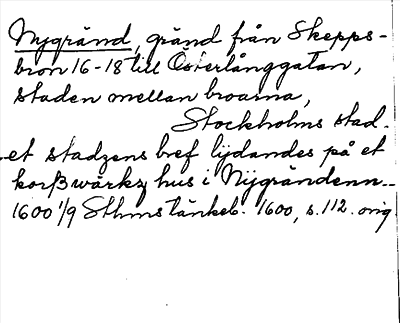 Nygränd, gränd från Skepps-
bron 16-18 till Österlånggatan,
staden mellan broarna,
Stockholms stad.
..et stadzens bref lijdandes på et
korßwärkz hus i Nijgrändenn...
1600 1/9 Sthms tänkeb. 1600, s. 112. orig.